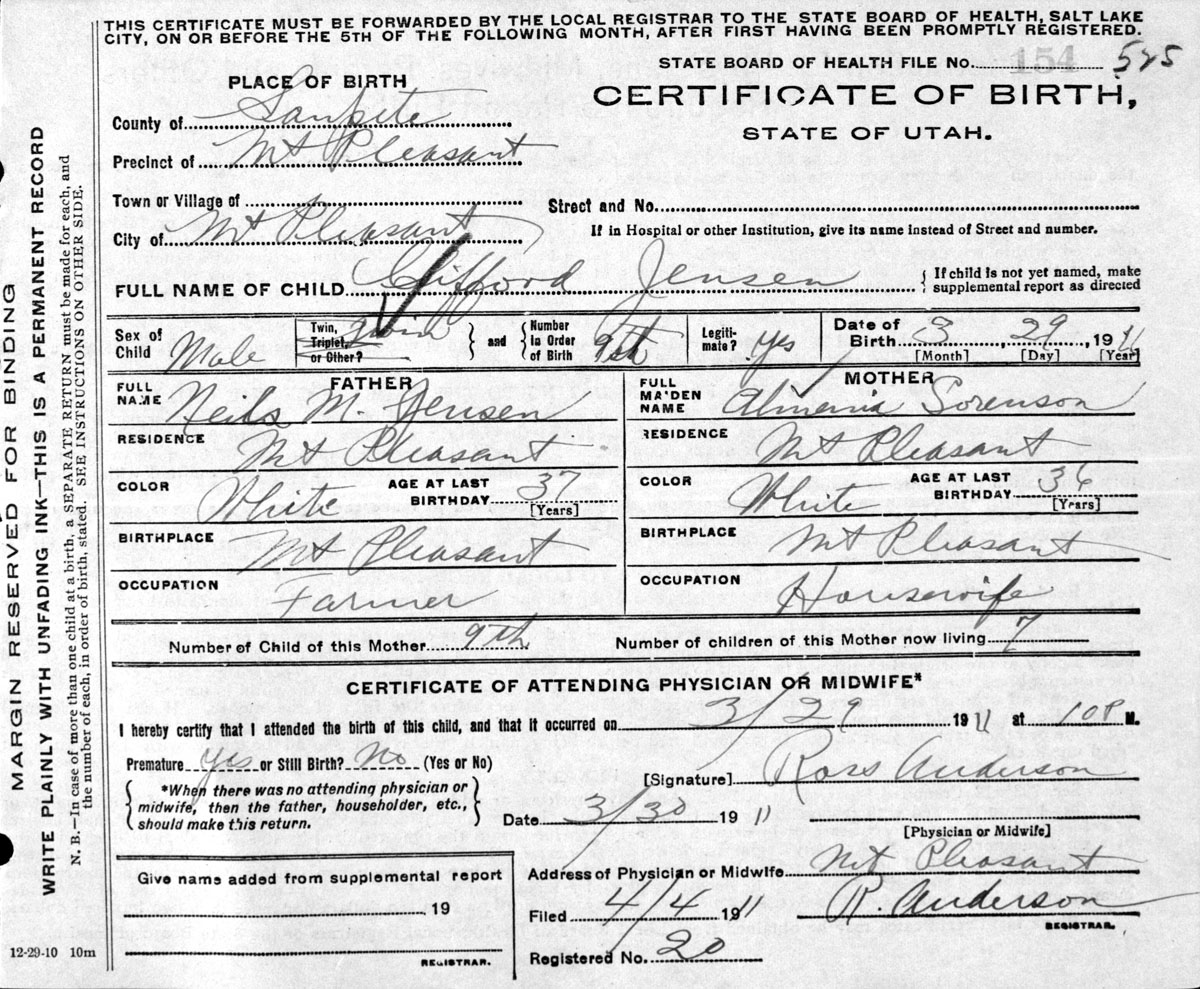 THIS CERTIFICATE MUST BE FORWARDED BY THE LOCAL REGISTRAR TO THE STATE BOARD OF HEALTH, SALT LAKE
CITY, ON OR BEFORE THE 5TH OF THE FOLLOWING MONTH, AFTER FIRST HAVING BEEN PROMPTLY REGISTERED.
STATE BOARD OF HEALTH FILE No. 154 525
PLACE OF BIRTH
CERTIFICATE OF BIRTH,
STATE OF UTAH.
County of Sanpete
Precinct of Mt Pleasant
Town or Village of
Street and No.
City of Mt Pleasant
If in Hospital or other Institution, give its name instead of Street and number.
FULL NAME OF CHILD Clifford Jensen { If child is not yet named, make
supplemental report as directed
Sex of Child Male
Twin, Triplet, or Other? twin } and { Number in Order of Birth 9th
Legiti-mate? Yes
Date of Birth 3, 29, 1911
[Month] [Day] [Year]
FATHER
FULL NAME Neils M. Jensen
RESIDENCE Mt Pleasant
COLOR White AGE AT LAST BIRTHDAY 37 [Years]
BIRTHPLACE Mt Pleasant
OCCUPATION Farmer
MOTHER
FULL MAIDEN NAME Almenia Sorenson
RESIDENCE Mt Pleasant
COLOR White AGE AT LAST BIRTHDAY 36 [Years]
BIRTHPLACE Mt Pleasant
OCCUPATION Housewife
Number of Child of this Mother 9th Number of children of this Mother now living 7
CERTIFICATE OF ATTENDING PHYSICIAN OR MIDWIFE*
I hereby certify that I attended the birth of this child, and that it occurred on 3/29 1911 at 10P M.
Premature yes or Still Birth? No (Yes or No)
[Signature] Ross Anderson
{ *When there was no attending physician or
midwife, then the father, householder, etc.,
should make this return. }
Date 3/30 1911
[Physician or Midwife]
Give name added from supplemental report
19
REGISTRAR.
Address of Physician or Midwife Mt Pleasant
Filed 4/4 1911 R. Anderson
REGISTRAR.
Registered No. 20
12-29-10 10m
MARGIN RESERVED FOR BINDING
WRITE PLAINLY WITH UNFADING INK—THIS IS A PERMANENT RECORD
N. B.—In case of more than one child at a birth, a SEPARATE RETURN must be made for each, and
the number of each, in order of birth, stated. SEE INSTRUCTIONS ON OTHER SIDE.